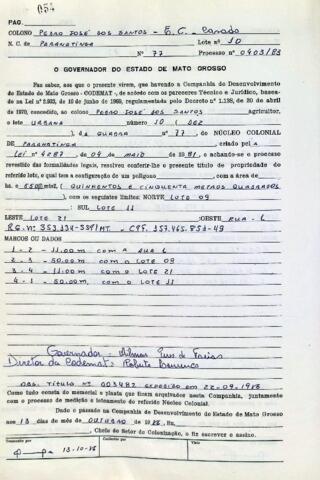 054
PAG.
COLONO PEDRO JOSÉ DOS SANTOS - E.C. CASADO
N. C. de PARANATINGA Lote nº 10
Nº 77 Processo nº 0403/83
O GOVERNADOR DO ESTADO DE MATO GROSSO
Faz saber, aos que o presente virem, que havendo a Companhia de Desenvolvimento
do Estado de Mato Grosso - CODEMAT -, de acordo com os pareceres Técnico e Jurídico, basea-
do na Lei nº 2.923, de 10 de junho de 1969, regulamentada pelo Decreto nº 1.138, de 20 de abril
de 1970, concedido ao colono PEDRO JOSÉ DOS SANTOS agricultor,
o lote URBANA número 10 ( DEZ
), da QUADRA nº 77, do NÚCLEO COLONIAL
de PARANATINGA criado pela
Lei nº 4287, de 04 de MAIO 1981, e achando-se o processo
revestido das formalidades legais, resolveu conferir-lhe o presente título de propriedade do
referido lote, o qual tem a configuração de um polígono com a área de
ha. e 550 m2 ( QUINHENTOS E CINQUENTA METROS QUADRADOS
), com os seguintes limites: NORTE LOTE 09
: SUL LOTE 11
LESTE LOTE 21 :OESTE RUA - L
MARCOS OU DADOS
1 - 2 - 11.00m COM A RUA L
2 - 3 - 50.00m COM O LOTE 09
3 - 4 - 11.00m COM O LOTE 21
4 - 1 - 50.00m COM O LOTE 11
Governador:
Diretor da Codemat: Roberto
OBS. TÍTULO Nº 003482 EXPEDIDO EM 22-09-1988
Como tudo consta do memorial e planta que ficam arquivados nesta Companhia, juntamente
com o processo de medição e loteamento do referido Núcleo Colonial.
Dado e passado na Companhia de Desenvolvimento do Estado de Mato Grosso
aos 13 dias do mês de OUTUBRO de 1988. Eu,
Chefe do Setor de Colonização, o fiz escrever e assino.
13-10-88
Conferido
Visto